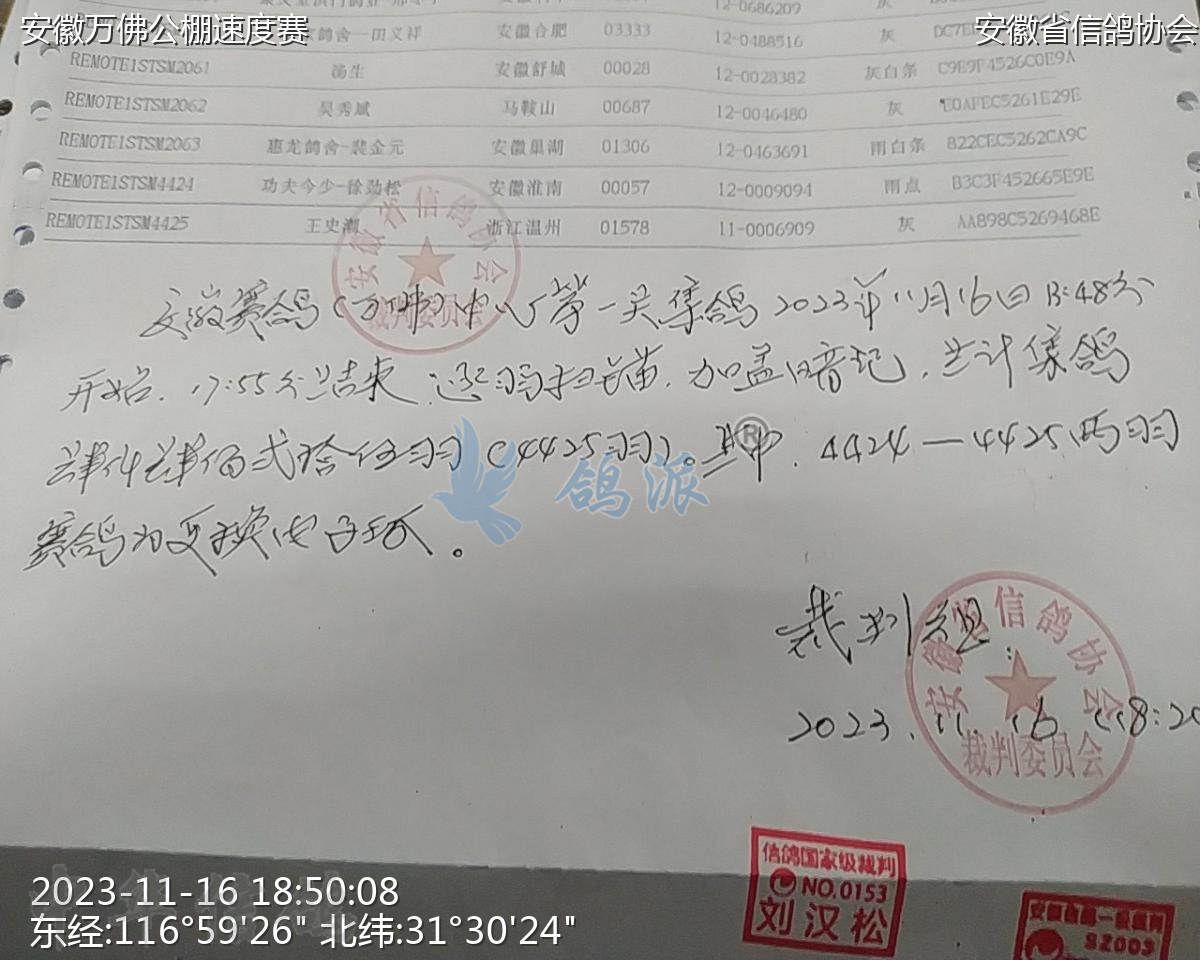 安徽万佛公棚速度赛
安徽省信鸽协会
12-0686209 灰
鸽舍-田义祥 安徽合肥 03333 12-0488516 灰
REMOTE1STSM2061 汤生 安徽舒城 00028 12-0028382 灰白条 C9E9F4526C0E9A
REMOTE1STSM2062 吴秀斌 马鞍山 00687 12-0046480 灰 E0AFEC5261E29E
REMOTE1STSM2063 惠龙鸽舍-裴金元 安徽巢湖 01306 12-0463691 雨白条 B22CEC5262CA9C
REMOTE1STSM4424 功夫今少-徐劲松 安徽淮南 00057 12-0009094 雨点 B3C3F452665E9E
REMOTE1STSM4425 王史潮 浙江温州 01578 11-0006909 灰 AA898C5269468E
安徽省信鸽协会
裁判委员会
安徽赛鸽(万佛)中心第一关集鸽2023年11月16日13:48分
开始,17:55分结束,逐羽扫描,加盖暗记,共计集鸽
肆仟肆佰贰拾伍羽(4425羽)。其中,4424—4425两羽
赛鸽为更换电子环。
鸽派
®
裁判组:
2023.11.16 18:20
安徽省信鸽协会
裁判委员会
信鸽国家级裁判
NO.0153
刘汉松
安徽省一级裁判
S2003
2023-11-16 18:50:08
东经:116°59'26" 北纬:31°30'24"